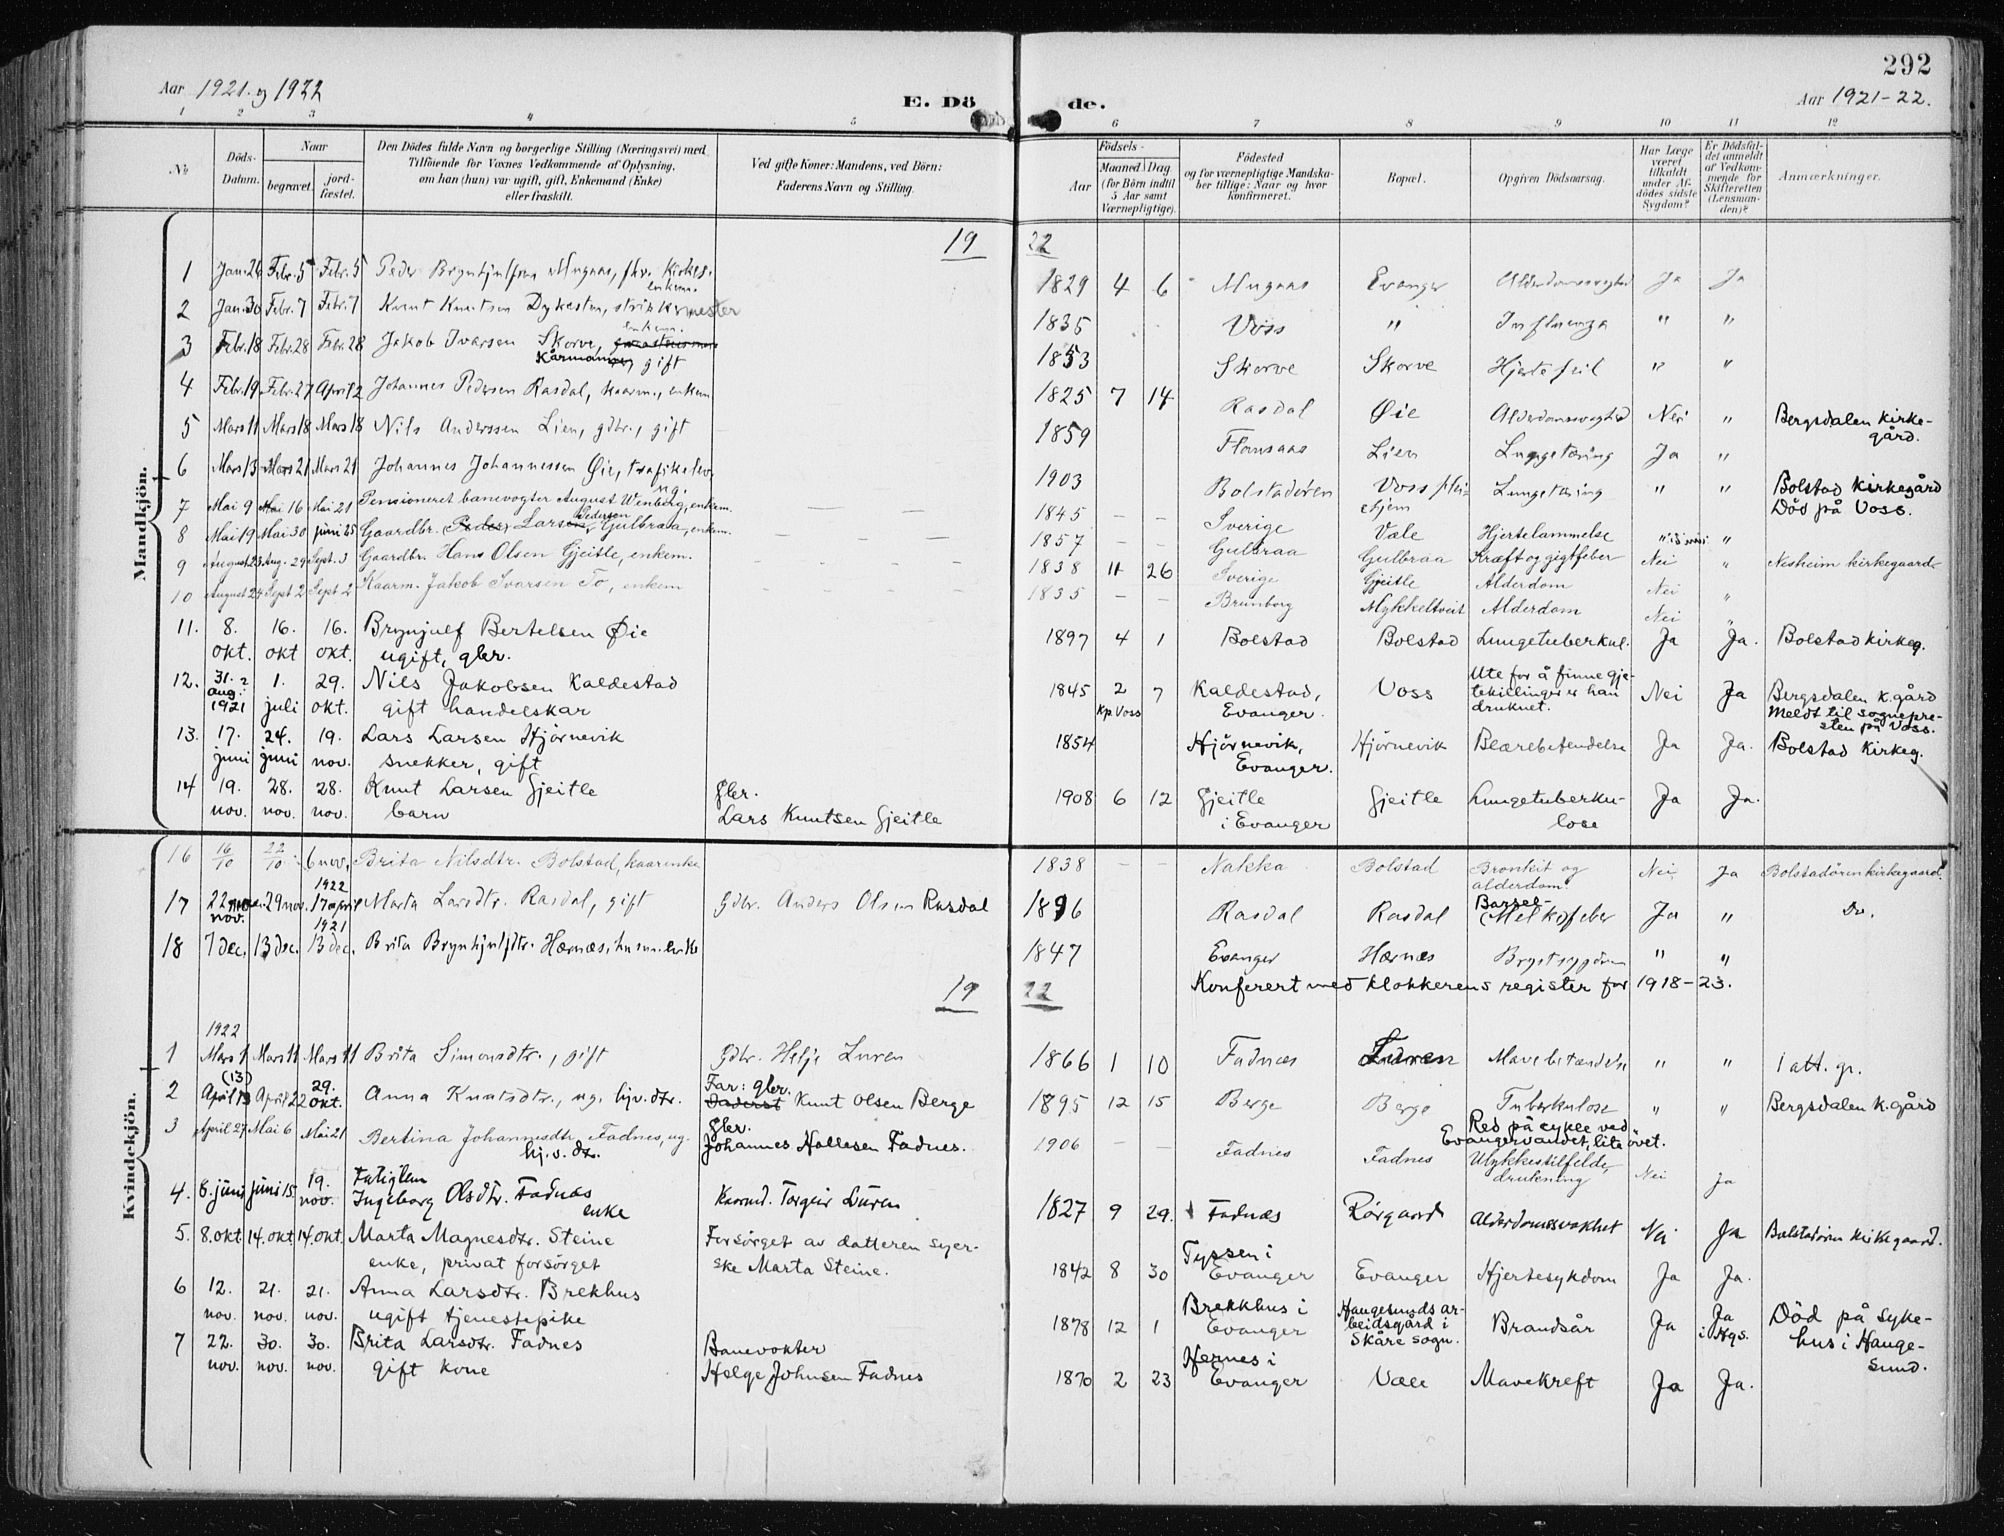 292
Aar 1921 og 1922
E. Dö
de.
Aar 1921-22.
1 2 3 4 5 6 7 8 9 10 11 12
No
Döds-
Datum.
Naar
begravet.
jord-
fæstet.
Den Dödes fulde Navn og borgerlige Stilling (Næringsvei) med
Tilföiende for Voxnes Vedkommende af Oplysning,
om han (hun) var ugift, gift, Enkemand (Enke)
eller fraskilt.
Ved gifte Koner: Mandens, ved Börn:
Faderens Navn og Stilling.
Födsels-
Aar
Maaned Dag
(for Börn indtil
5 Aar samt
Værnepligtige).
Födested
og for værnepligtige Mandska-
ber tillige: Naar og hvor
konfirmeret.
Bopæl.
Opgiven Dödsaarsag.
Har Læge
været
tilkaldt
under Af-
dödes sidste
Sygdom?
Er Dödsfal-
det anmeldt
af Vedkom-
mende for
Skifteretten
(Lensman-
den)?
Anmærkninger.
Mandkjön.
19 22
1 Jan. 26 Febr. 5 Febr. 5 Peder Brynhjulfsen Mugaas, fhv. kirkes. enkem. 1829 4 6 Mugaas Evanger Alderdomssvaghed Ja Ja
2 Jan. 30 Febr. 7 Febr. 7 Knut Knutsen Dykesten, strikkemester 1835 Voss " Influenza " "
enkem.
3 Febr. 18 Febr. 28 Febr. 28 Jakob Ivarsen Skorve, 1853 Skorve Skorve Hjertefeil " "
Kårmann, gift
4 Febr. 19 Febr. 27 April 2 Johannes Pedersen Rasdal, kaarm., enkem 1825 7 14 Rasdal Øie Alderdomssvaghed Nei " Bergsdalen kirke-
gård.
5 Mars 11 Mars 18 Mars 18 Nils Anderssen Lien, gdbr., gift 1859 Flamsaas Lien Lungetæring Ja "
6 Mars 13 Mars 21 Mars 21 Johannes Johannessen Øie, trafikelev. 1903 Bolstadøren Voss pleie-
hjem Lungetæring " " Bolstad Kirkegård
Død på Voss.
ug.
7 Mai 9 Mai 16 Mai 21 Pensioneret banevogter August Wenberg, enkem. — — 1845 — — Sverige Væle Hjertelammelse "
8 Mai 19 Mai 30 juni 25 Gaardbr. (Peder) Larsen Pedersen Gulbraa, enkem. — — — 1857 — — Gulbraa Gulbraa Kræft og gigtfeber Nei " Nesheim kirkegaard
9 August 23 Aug. 29 Sept. 3 Gaardbr. Hans Olsen Gjeitle, enkem. — — — 1838 11 26 Sverige Gjeitle Alderdom Nei "
10 August 24 Sept 2 Sept 2 Kaarm. Jakob Ivarsen To, enkem — — — 1835 — — Brunborg Mykkeltveit Alderdom Nei "
11. 8. okt. 16. okt 16. okt. Brynjulf Bertelsen Øie
ugift, gbr. 1897 4 1 Bolstad Bolstad Lungetuberkul. Ja Ja. Bolstad kirkeg.
12. 31. ? aug. 1921 1. juli 29. okt. Nils Jakobsen Kaldestad
gift handelskar 1845 2 7 Kp. Voss Kaldestad,
Evanger. Voss Ute for å finne gje-
tekillinger er han
druknet. Nei Ja Bergsdalen k.gård
Meldt til sognepre-
sten på Voss.
13. 17. juni 24. juni 19. nov. Lars Larsen Hjørnevik
snekker, gift 1854 Hjørnevik,
Evanger. Hjørnevik Blærebetendelse Ja Ja. Bolstad Kirkeg.
14 19. nov. 28. nov. 28. nov. Knut Larsen Gjeitle
barn Gbr.
Lars Knutsen Gjeitle 1908 6 12 Gjeitle
i Evanger Gjeitle Lungetuberku-
lose Ja Ja.
Kvindekjön.
16 16/10 22/10 6 nov. Brita Nilsdtr. Bolstad, kaarenke 1838 — — Nakka Bolstad Bronkit og
alderdom. Nei Ja Bolstadören kirkegaard.
17 22 nov. 29 nov. 1922 17 april Marta Larsdtr. Rasdal, gift Gdbr. Anders Olsen Rasdal 1896 Rasdal Rasdal Barsel-
(Melk)feber Ja " Do.
18 7 dec. 13 dec. 1921 13 dec. Brita Brynhjulfdtr. Hærnæs, husm.enke 1847 Evanger Hærnæs Brystsygdom " "
Konferert med klokkerens register for 1918-23.
19 22
1922
1 Mars 1 Mars 11 Mars 11 Brita Simonsdtr., gift Gdbr. Helje Luren 1866 1 10 Fadnæs Luren Mavebetændelse " " 1 att. gr.
2 (13) April 13 April 22 29. okt. Anna Knutsdtr., ug. hjv. dtr. Far: gbr.
Knut Olsen Berge 1895 12 15 Berge Berge Tuberkulose " " Bergsdalen k.gård
3 April 27 Mai 6 Mai 21 Bertina Johannesdtr Fadnes, ug.
hj.v.dtr. Gbr.
Johannes Hallesen Fadnes. 1906 — — Fadnes Fadnes Red på cykle ved
Evangervandet, lite øvet.
Ulykkestilfelde,
drukning Nei Ja
4. 6. juni juni 15. 19. nov. Fatiglem
Ingeborg Olsdtr. Fadnæs
enke Kaarmd. Torgeir Luren 1827 9 29. Fadnæs Rørgaard Alderdomssvakhet Nei Ja Bolstadören kirkegaard.
5. 8. okt. 14. okt. 14. okt. Marta Magnesdtr. Steine
enke, privat forsörget Forsörget av datteren syer-
ske Marta Steine. 1842 8 30 Tyssen i
Evanger Evanger Hjertesykdom Ja Ja.
6 12. nov. 21. nov. 21. nov. Anna Larsdtr. Brekhus
ugift tjenestepike 1878 12 1 Brekkhus i
Evanger Haugesunds ar-
beidsgård i
Skåre sogn. Brandsår Ja Ja
i Hgs. Död på syke-
hus i Hauge-
sund.
7 22. nov. 30. nov. 30. nov. Brita Larsdtr. Fadnes
gift kone Banevokter
Helge Johnsen Fadnes 1870 2 23 Hernes i
Evanger Væle Mavekreft Ja Ja.